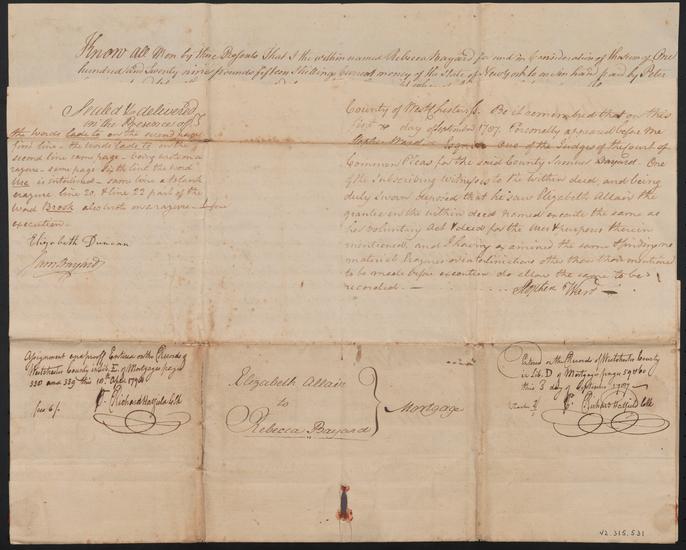 Know all Men by these Presents That I the within named Rebecca Bayard for and in Consideration of the sum of One
hundred and twenty nine pounds fifteen shillings Current money of the State of New York to me in hand paid by Peter
Sealed & delivered
in the Presence of
the words Lade to on the second page
first line - the words Lade to on the
second line same page - being on a
razure - same page the line the word
the is interlined - same line a blank
erazure line 20, & line 22 part of the
word Brook also wrote on a razure - before
execution -
Elizabeth Duncan
Sam Bayard
County of West Chester ss. Be it remembered that on this
first day of September 1787. Personally appeared before me
Stephen Ward Esquire One of the Judges of the Court of
Common Pleas for the said County Samuel Bayard. One
of the Subscribing Witnesses to the within deed, and being
duly Sworn deposed that he saw Elizabeth Allair the
grantor in the within deed named execute the same as
her voluntary Act & deed for the uses & purposes therein
mentioned, and I having examined the same & finding no
material Erazures or interlineations other than those mentioned
to be made before execution do allow the same to be
recorded. -
Stephen Ward
Assignment and proof Entered in the Records of
Westchester County in Lib. E of Mortgages pages
330 and 339 this 10th April 1794
fees 6/.
Richard Hatfield Clk
Elizabeth Allair
to
Rebecca Bayard
Mortgage
Entered in the Records of Westchester County
in Lib. D of Mortgages pages 59 & 60
this 3 day of September 1787
Richard Hatfield Clk
42.315.531